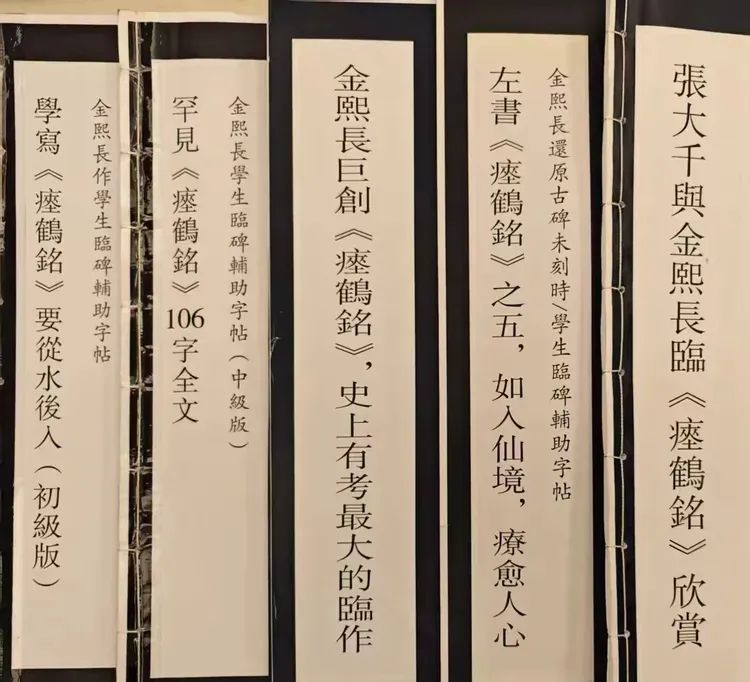 張大千與金熙長臨《瘞鶴銘》欣賞
金熙長還原古碑未刻時/學生臨碑輔助字帖
左書《瘞鶴銘》之五，如入仙境，療愈人心
金熙長巨創《瘞鶴銘》，史上有考最大的臨作
金熙長學生臨碑輔助字帖（中級版）
罕見《瘞鶴銘》106字全文
金熙長作學生臨碑輔助字帖
學寫《瘞鶴銘》要從水後入（初級版）